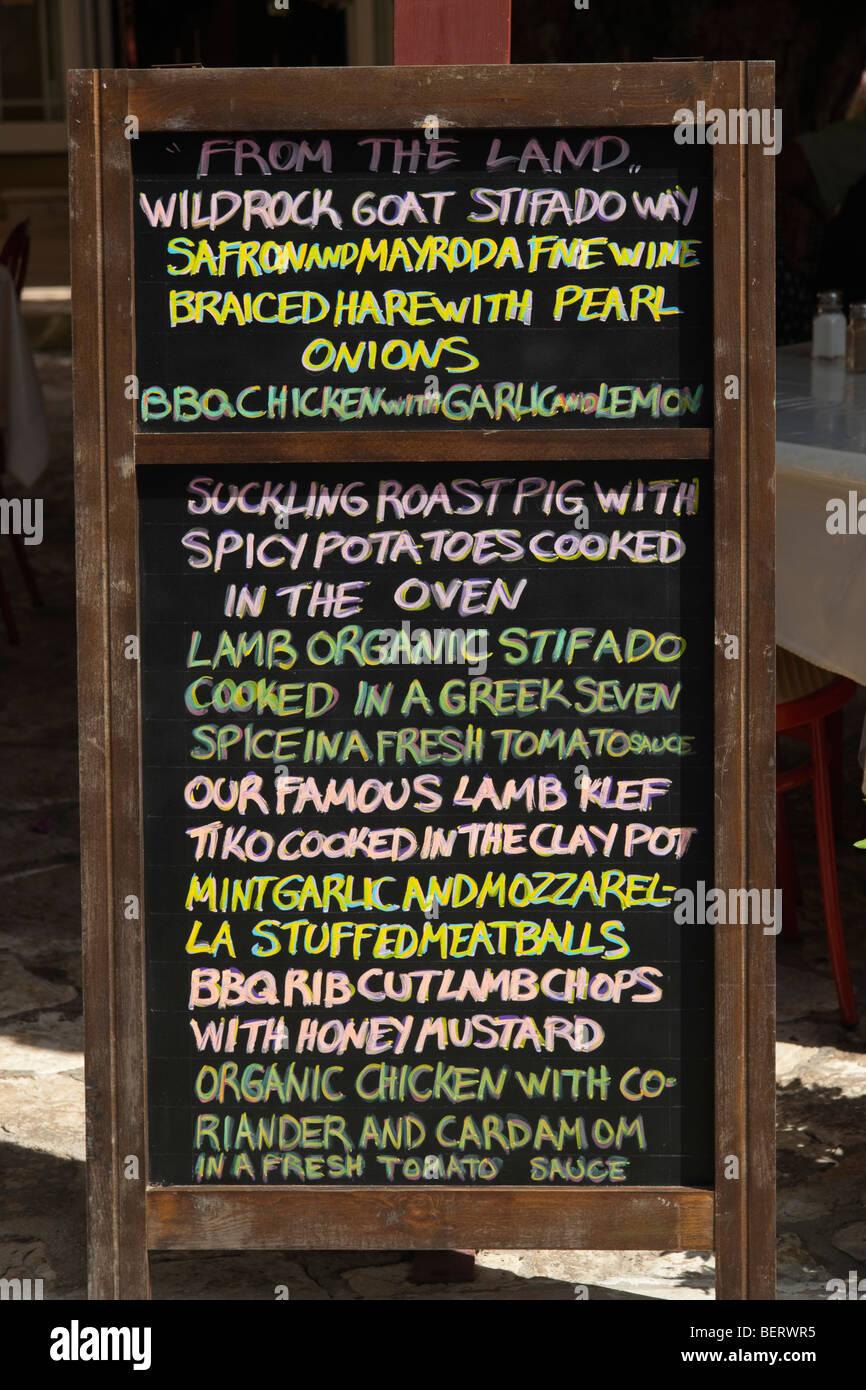 "FROM THE LAND"
WILD ROCK GOAT STIFADO WAY
SAFRON AND MAYRODAFNE WINE
BRAICED HARE WITH PEARL
ONIONS
BBQ CHICKEN WITH GARLIC AND LEMON
SUCKLING ROAST PIG WITH
SPICY POTATOES COOKED
IN THE OVEN
LAMB ORGANIC STIFADO
COOKED IN A GREEK SEVEN
SPICE IN A FRESH TOMATO SAUCE
OUR FAMOUS LAMB KLEF
TIKO COOKED IN THE CLAY POT
MINT GARLIC AND MOZZAREL-
LA STUFFED MEATBALLS
BBQ RIB CUT LAMB CHOPS
WITH HONEY MUSTARD
ORGANIC CHICKEN WITH CO-
RIANDER AND CARDAMOM
IN A FRESH TOMATO SAUCE
alamy
Image ID: BERWR5
www.alamy.com